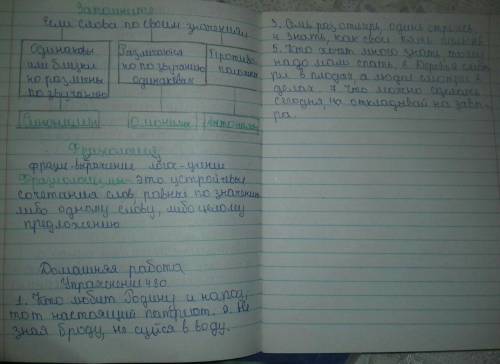 Запомните
Если слова по своим значениям
Одинаковы
или близки
но различны
по звучанию
Различаются
но по звучанию
одинаковы
Противо-
положны
Синонимы
Омонимы
Антонимы
Фразеология
фразис-выражение логос-учение
Фразеологизмы - это устойчивые
сочетания слов, равные по значению
либо одному слову, либо целому
предложению
Домашняя работа
Упражнение 480
1. Кто любит Родину и народ,
тот настоящий патриот. 2. Не
зная броду, не суйся в воду.
3. Семь раз отмерь, один отрежь.
4. Знать, как свои пять пальцев.
5. Кто хочет много знать, тому
надо мало спать. 6. Деревья смот-
ри в плодах, а людей смотри в
делах. 7. Что можно сделать
сегодня, не откладывай на завт-
ра.